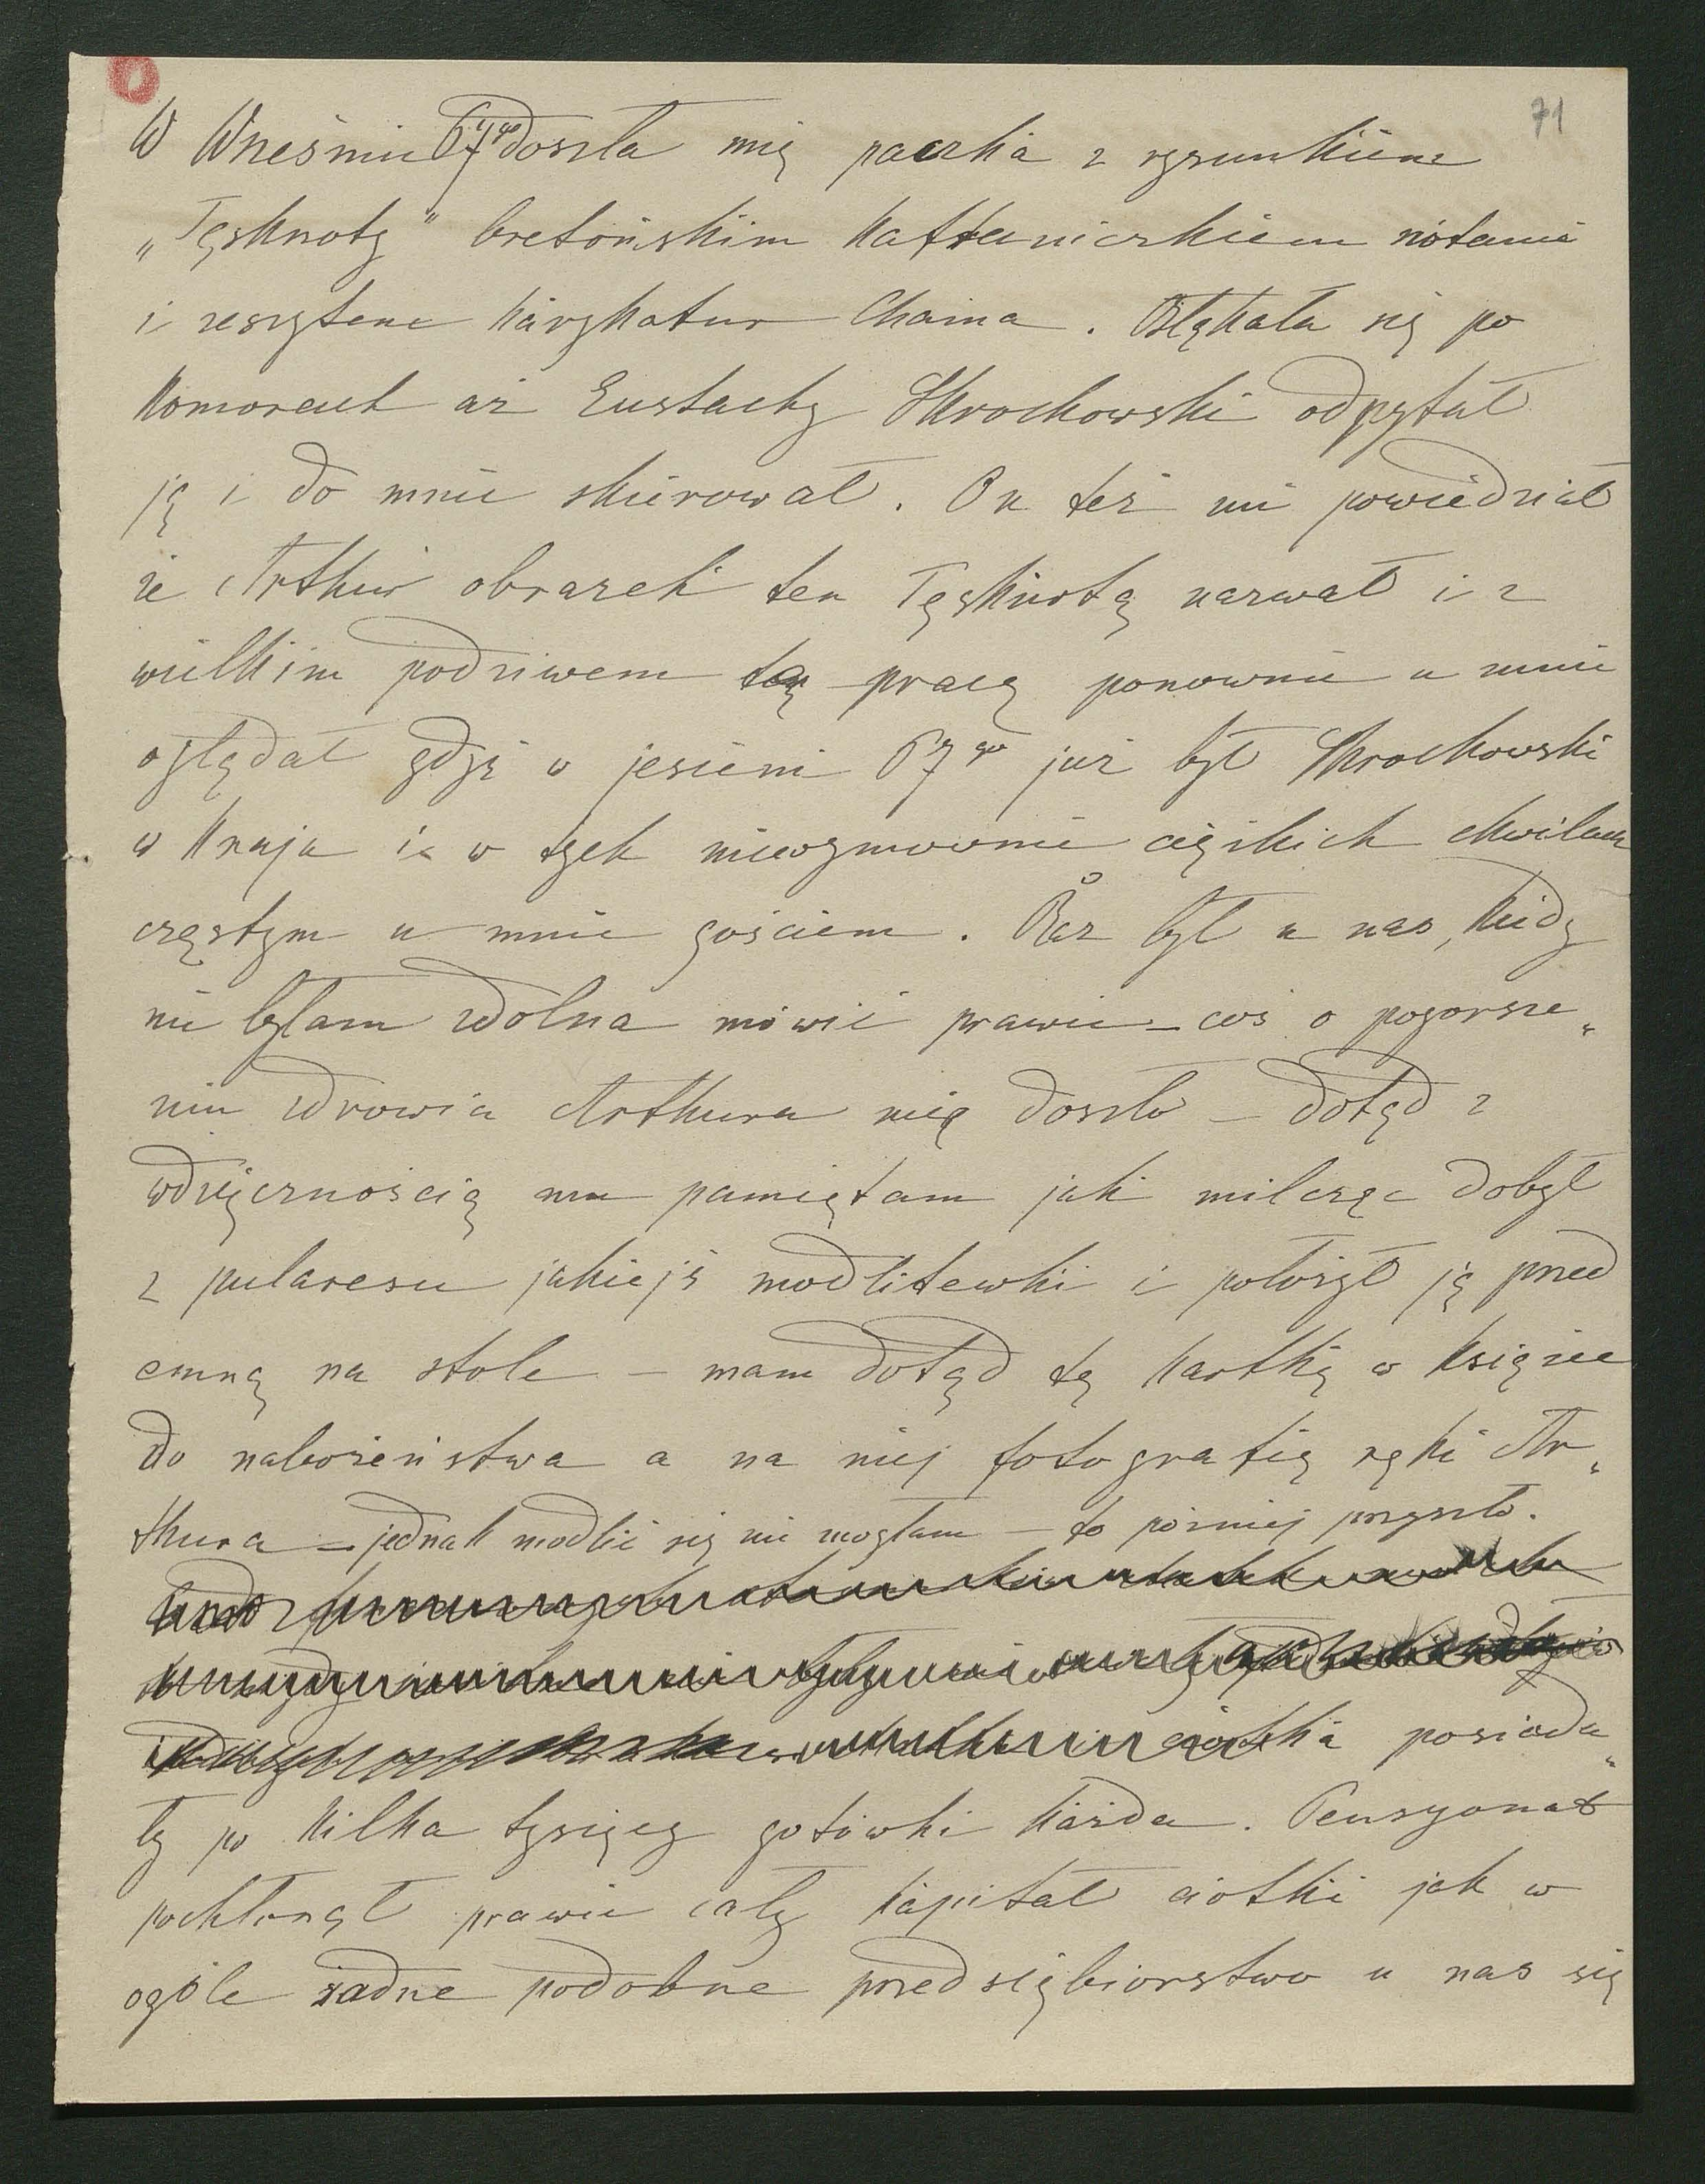 71
W Wrześniu 67go doszła mię paczka z rysunkiem
„Tęsknoty” bretońskim kaftaniczkiem nótami
i zeszytem karykatur Chama. Błąkała się po
komorach aż Eustachy Skrochowski odpytał
ją i do mnie skierował. On też mi powiedział
że Arthur obrazek ten Tęsknotą nazwał i z
wielkim podziwem tą pracę ponownie u mnie
oglądał gdyż w jesieni 67go już był Skrochowski
w kraju i w tych niewymownie ciężkich chwilach
częstym u mnie gościem. Raz był u nas, kiedy
nie byłam zdolna mówić prawie – coś o pogorsze„
niu zdrowia Arthura mię doszło – dotąd z
wdzięcznością mu pamiętam jak milcząc dobył
z pularesu jakiejś modlitewki i położył ją przed
emną na stole – mam dotąd tę kartkę w książce
do nabożeństwa a na niej fotografię ręki Ar„
thura – jednak modlić się nie mogłam – to później przyszło.
ciotka posiada„
ły po kilka tysięcy gotówki każda. Pensyonat
pochłonął prawie cały kapitał ciotki jak w
ogóle żadne podobne przedsiębiorstwo u nas się